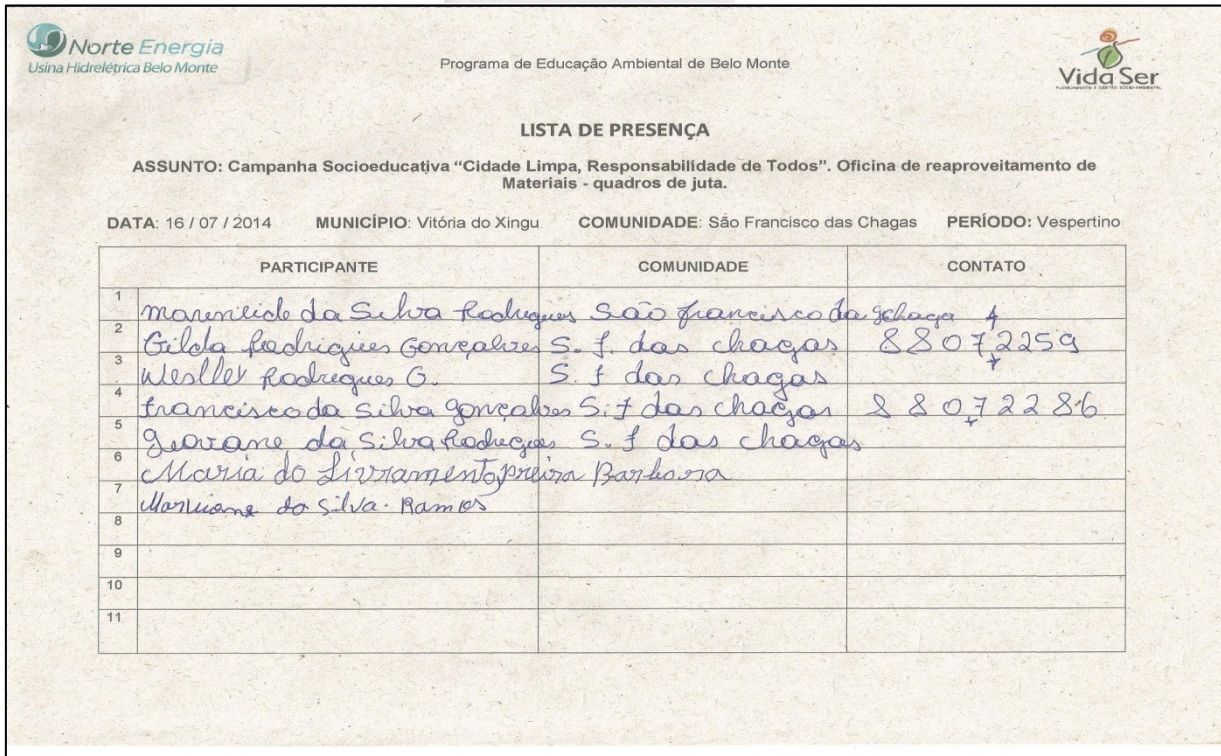 Norte Energia
Usina Hidrelétrica Belo Monte
Programa de Educação Ambiental de Belo Monte
Vida Ser
LISTA DE PRESENÇA
ASSUNTO: Campanha Socioeducativa “Cidade Limpa, Responsabilidade de Todos”. Oficina de reaproveitamento de
Materiais - quadros de juta.
DATA: 16 / 07 / 2014 MUNICÍPIO: Vitória do Xingu COMUNIDADE: São Francisco das Chagas PERÍODO: Vespertino
PARTICIPANTE COMUNIDADE CONTATO
1 da Silva Rodrigues São francisco da
2 Gilda Rodrigues Gonçalves S. f. das chagas 88072259
3 Weslley Rodrigues G. S. f das chagas
4 francisco da Silva gonçalves S. f das chagas 88072286
5 geovane da Silva Rodrigues S. f das chagas
6 Maria do Livramento Barbosa
7 da Silva. Ramos
8
9
10
11